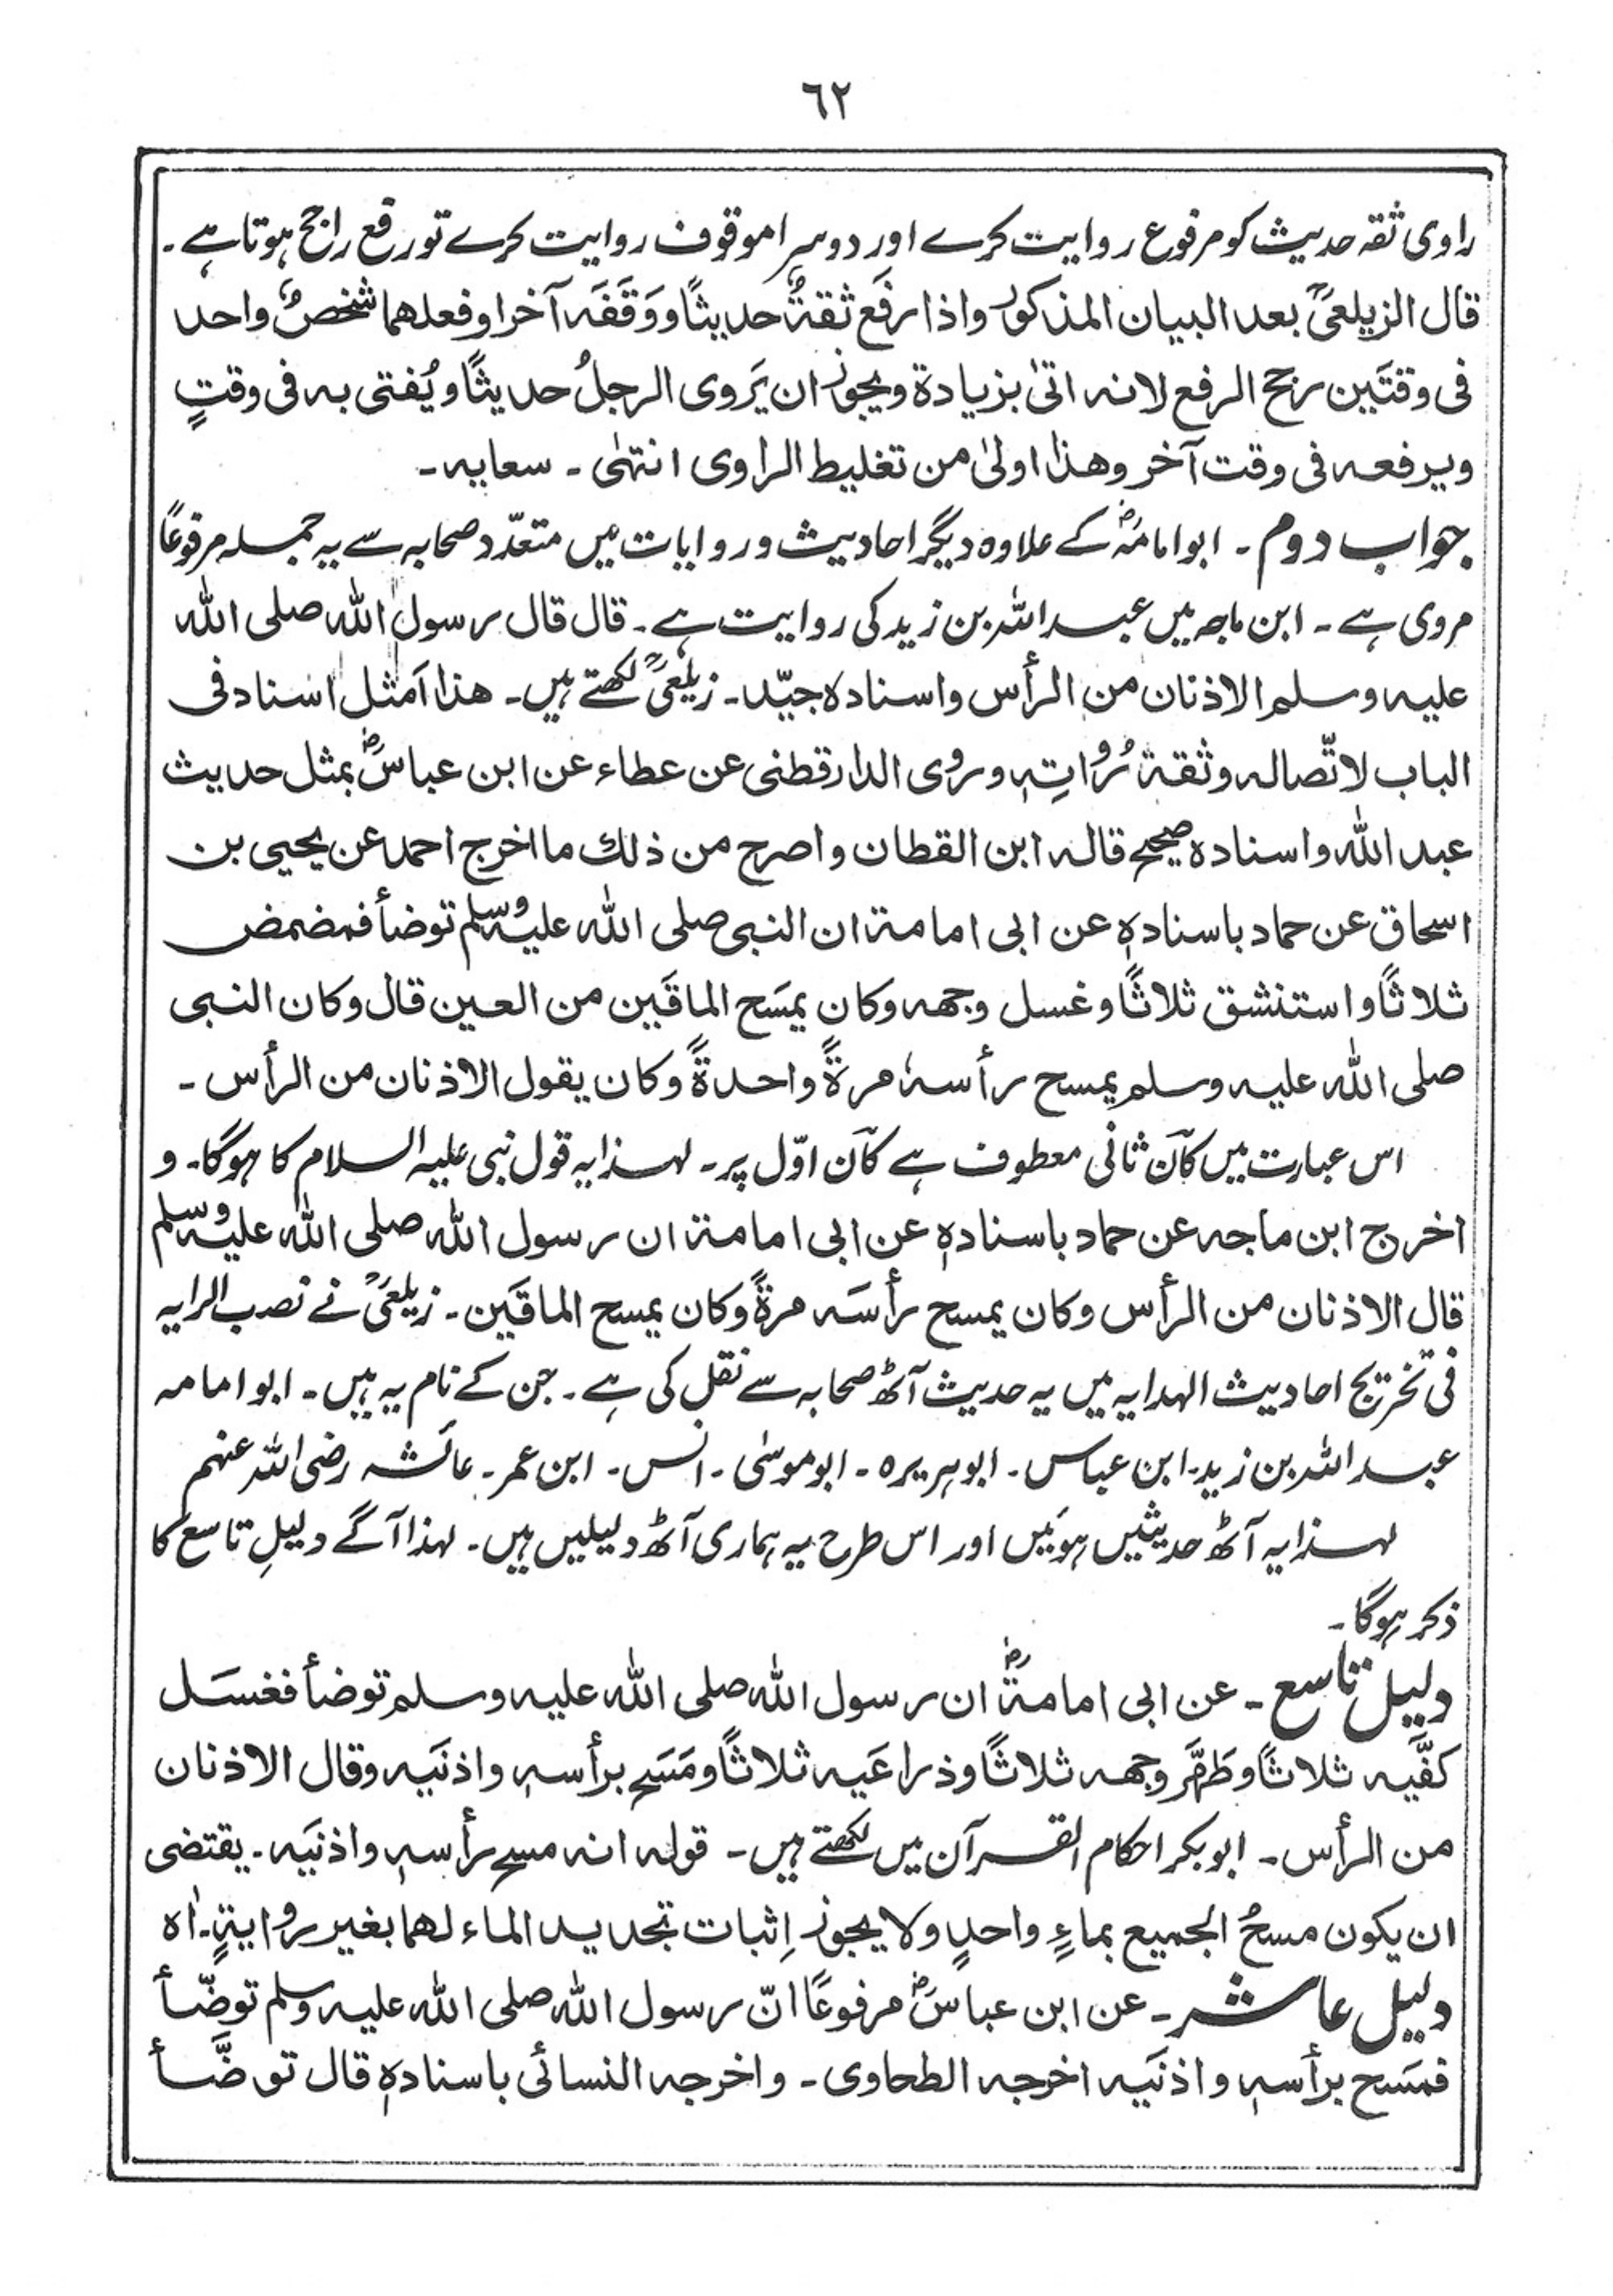 ٦٢
راوی ثقہ حدیث کو مرفوع روایت کرے اور دوسرا موقوف روایت کرے تو رفع راجح ہوتا ہے ۔
قال الزیلعیؒ بعد البیان المذکور واذا رفَع ثقةٌ حدیثًا ووَقَفَه آخر او فعلهما شخصٌ واحد
فی وقتَین رجح الرفع لانه اتیٰ بزیادة ویجوز ان یَروی الرجلُ حدیثًا ویُفتی به فی وقتٍ
ویرفعه فی وقت آخر وهٰذا اولیٰ من تغلیط الراوی انتهٰی ۔ سعایه ۔
جواب دوم ۔ ابوامامہؓ کے علاوہ دیگر احادیث و روایات میں متعدّد صحابہ سے یہ جملہ مرفوعًا
مروی ہے ۔ ابن ماجہ میں عبداللہ بن زید کی روایت ہے ۔ قال قال رسول الله صلی الله
علیه وسلم الاذنان من الرأس واسناده جیّد ۔ زیلعیؒ لکھتے ہیں ۔ هذا اَمثل اسناد فی
الباب لاتّصاله وثقة رُواتِهٖ وروی الدارقطنی عن عطاء عن ابن عباسؓ بمثل حدیث
عبد الله واسناده صحیح قاله ابن القطان واصرح من ذلك ما اخرج احمد عن یحیی بن
اسحاق عن حماد باسنادهٖ عن ابی امامة ان النبی صلی الله علیه وسلم توضأ فمضمض
ثلاثًا واستنشق ثلاثًا وغسل وجهه وکان یمسَح الماقَین من العین قال وکان النبی
صلی الله علیه وسلم یمسح رأسهٗ مرةً واحدةً وکان یقول الاذنان من الرأس ۔
اس عبارت میں کآن ثانی معطوف ہے کآن اوّل پر ۔ لہٰذا یہ قول نبی علیہ السلام کا ہوگا ۔ و
اخرج ابن ماجه عن حماد باسنادهٖ عن ابی امامة ان رسول الله صلی الله علیه وسلم
قال الاذنان من الرأس وکان یمسح رأسَه مرةً وکان یمسح الماقَین ۔ زیلعیؒ نے نصب الرایہ
فی تخریج احادیث الہدایہ میں یہ حدیث آٹھ صحابہ سے نقل کی ہے ۔ جن کے نام یہ ہیں ۔ ابو امامہ
عبداللہ بن زید ۔ ابن عباس ۔ ابوہریرہ ۔ ابوموسٰی ۔ انس ۔ ابن عمر ۔ عائشہ رضی اللہ عنہم
لہٰذا یہ آٹھ حدیثیں ہوئیں اور اس طرح یہ ہماری آٹھ دلیلیں ہیں ۔ لہذا آگے دلیلِ تاسع کا
ذکر ہوگا ۔
دلیل تاسع ۔ عن ابی امامةؓ ان رسول الله صلی الله علیه وسلم توضأ فغسَل
کفَّیه ثلاثًا وطَهَّر وجهه ثلاثًا وذراعَیه ثلاثًا ومَسَح برأسهٖ واذنَیه وقال الاذنان
من الرأس ۔ ابوبکر احکام القرآن میں لکھتے ہیں ۔ قوله انه مسح رأسهٖ واذنَیه ۔ یقتضی
ان یکون مسحُ الجمیع بماءٍ واحدٍ ولا یجوز اِثبات تجدید الماء لهما بغیر روایةٍ ۔ اه
دلیل عاشر ۔ عن ابن عباسؓ مرفوعًا انّ رسول الله صلی الله علیه وسلم توضّأ
فمَسَح برأسهٖ واذنَیه اخرجه الطحاوی ۔ واخرجه النسائی باسنادهٖ قال توضَّأ